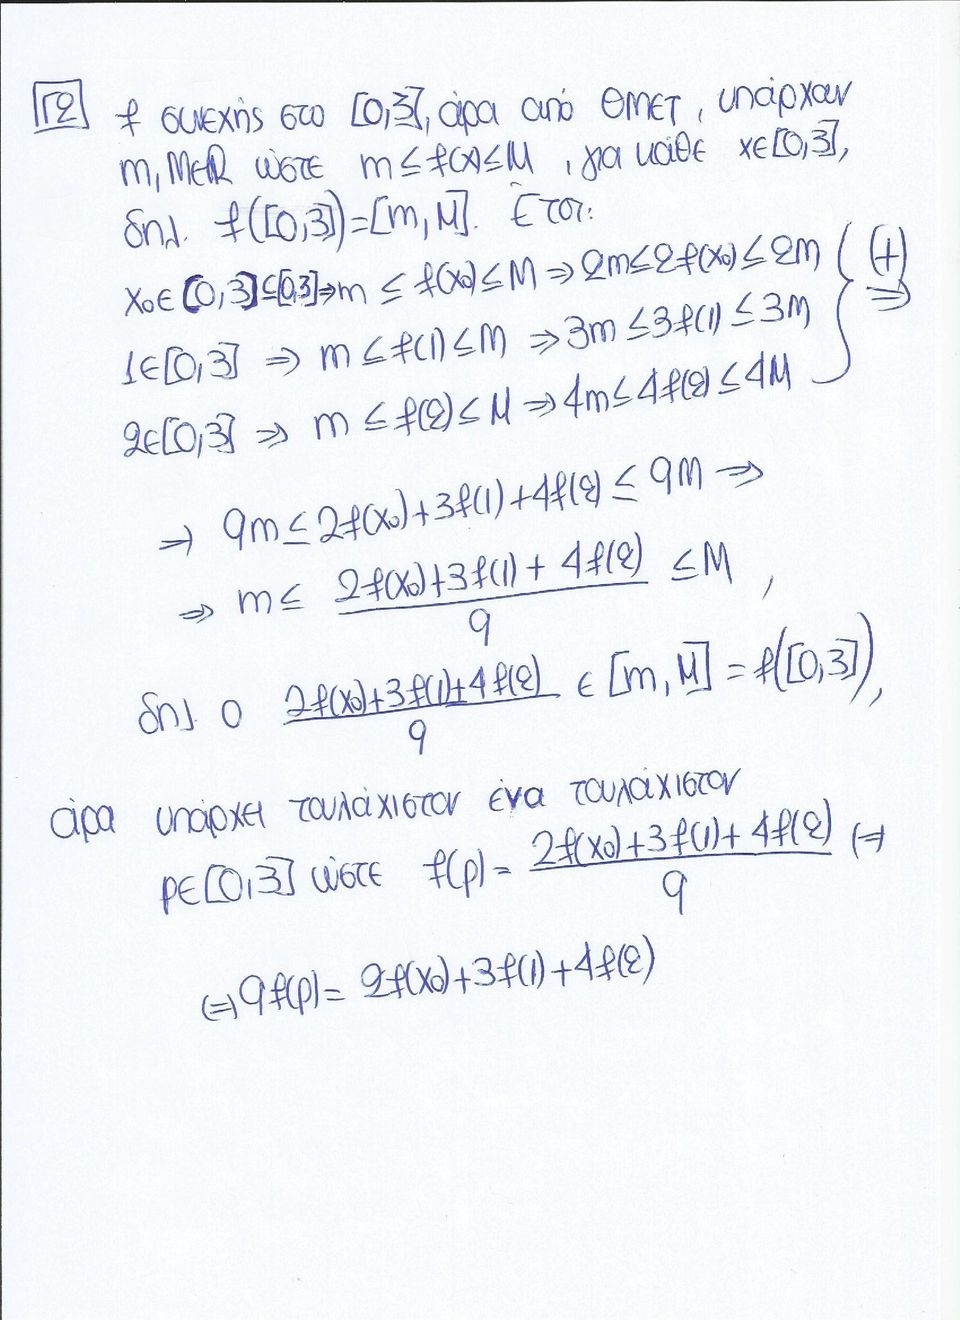 Γ2 f συνεχής στο [0,3], άρα από ΘΜΕΤ, υπάρχουν
m, M∈ℝ ώστε m ≤ f(x) ≤ M, για κάθε x∈[0,3],
δηλ. f([0,3])=[m,M]. Έτσι:
x₀∈[0,3]⊆[0,3]⇒m ≤ f(x₀) ≤ M ⇒ 2m≤2f(x₀) ≤ 2M
1∈[0,3] ⇒ m ≤ f(1) ≤ M ⇒ 3m ≤3f(1) ≤ 3M (+) ⇒
2∈[0,3] ⇒ m ≤ f(2) ≤ M ⇒ 4m≤4f(2) ≤ 4M
⇒ 9m≤2f(x₀)+3f(1)+4f(2) ≤ 9M ⇒
⇒ m ≤ (2f(x₀)+3f(1)+4f(2))/9 ≤ M ,
δηλ. ο (2f(x₀)+3f(1)+4f(2))/9 ∈ [m,M] = f([0,3]),
άρα υπάρχει τουλάχιστον ένα τουλάχιστον
ρ∈[0,3] ώστε f(ρ) = (2f(x₀)+3f(1)+4f(2))/9 ⇔
⇔ 9f(ρ) = 2f(x₀)+3f(1)+4f(2)